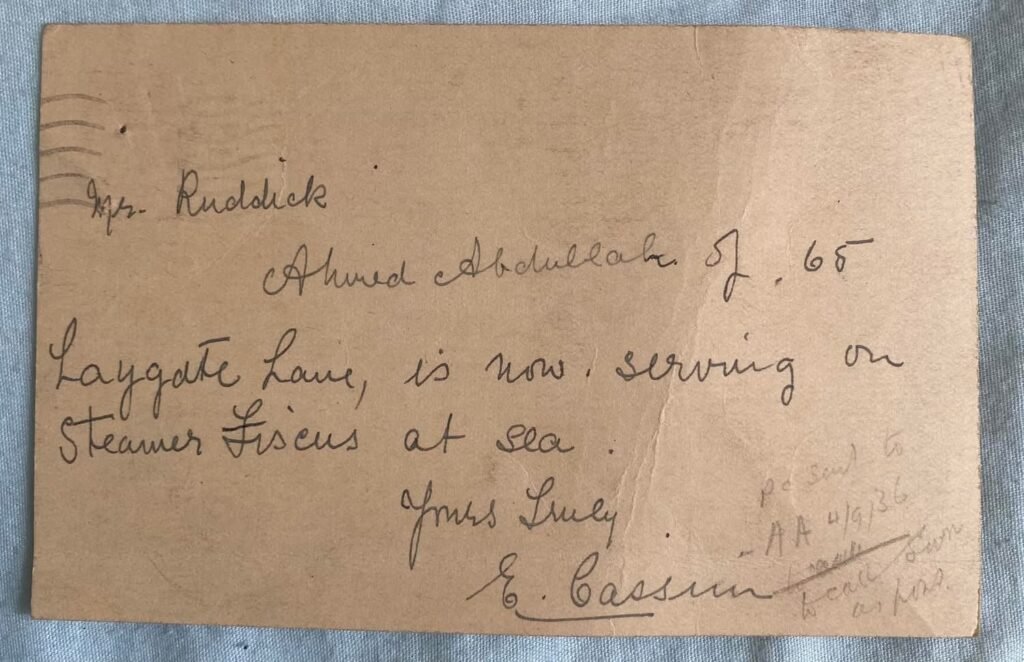 Mr. Ruddick
Ahmed Abdullah. of . 65
Laygate Lane, is now. serving on
Steamer Fiscus at sea .
Yours Truly
E. Cassim
pc sent to
- AA 4/9/36
to call soon
as poss.